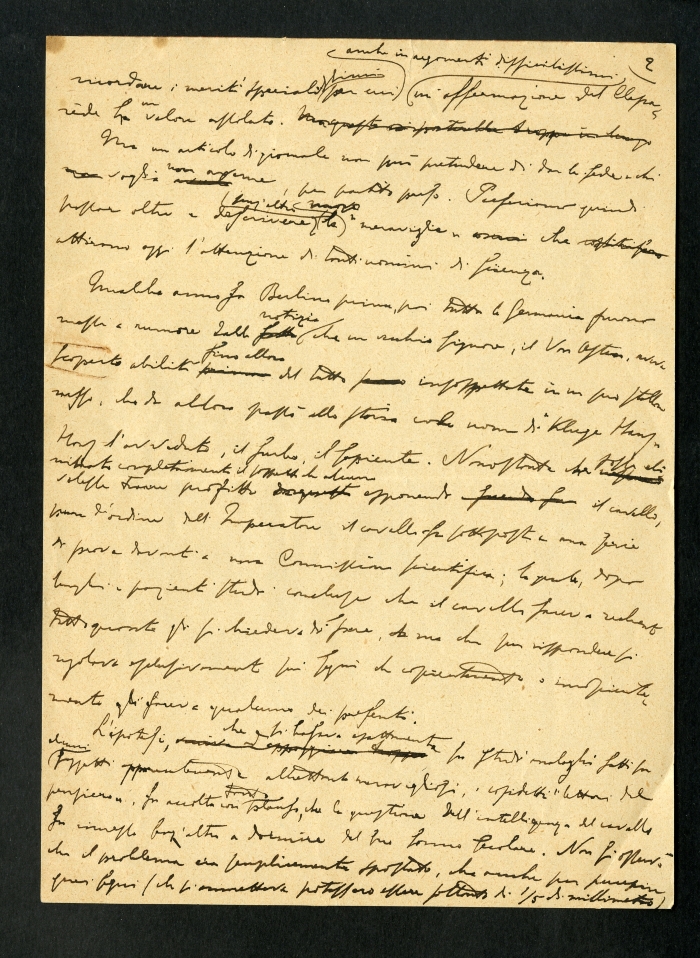 anche in argomenti difficilissimi, 2
ricordare i meriti speciali per cui) (un'affermazione del Clapa-
rède ha un valore assoluto.
Ma un articolo di giornale non può pretendere di dar la fede a chi
voglia non averne, per partito preso. Preferiamo quindi
passar oltre a descrivere la "meraviglia" che
attirano oggi l'attenzione di tanti uomini di scienza.
Qualche anno fa Berlino prima, poi tutta la Germania furono
messe a rumore dalla notizia che un vecchio signore, il Von Osten, aveva
scoperto abilità fino allora del tutto insospettate in un suo stallone
russo, che da allora passò alla storia col nome di Kluge Hans,
Hans l'avveduto, il furbo, il sapiente. Nonostante
mirato completamente il
volesse trarre profitto esponendo il cavallo,
pure d'ordine dell'Imperatore il cavallo fu sottoposto a una serie
di prove davanti a una Commissione scientifica; la quale, dopo
lunghi e pazienti studi concluse che il cavallo faceva realmente
tutto quanto gli si chiedeva di fare, ma che per rispondere si
regolava esclusivamente sui segni che coscientemente, o incosciente-
mente gli faceva qualcuno dei presenti.
L'ipotesi, che si basava esattamente su studi analoghi fatti su
alcuni soggetti altrettanto meravigliosi, i cosidetti "lettori del
pensiero", fu accolta con tanto plauso, che la questione dell'intelligenza del cavallo
fu rimessa senz'altro a dormire del suo sonno secolare. Non si osservò
che il problema era semplicemente spostato, che anche per percepire
quei segni (che si ammetteva potessero essere soltanto di 1/5 di millimetro)